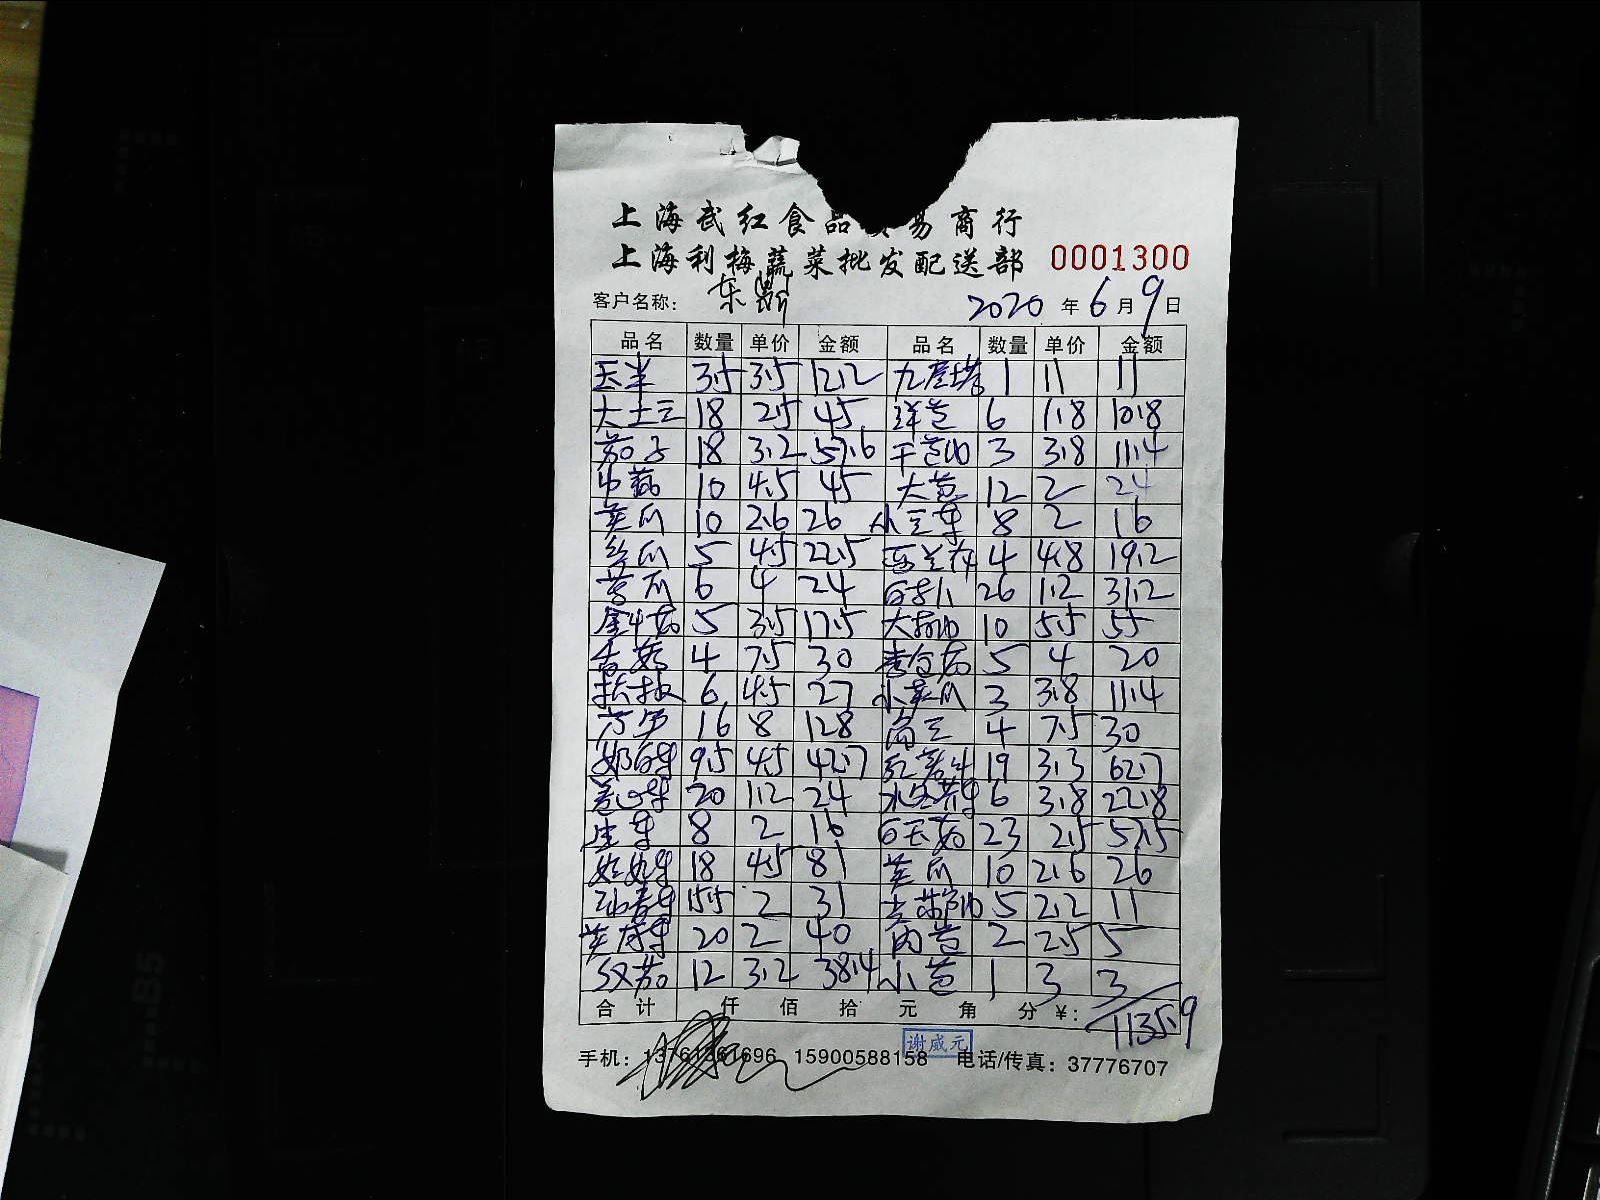 上海武红食品 易商行
上海利梅蔬菜批发配送部 0001300
客户名称: 2020年6月9日
品名 数量 单价 金额 品名 数量 单价 金额
玉米 3.5 3.5 12.2 九层塔 1 11 11
大土豆 18 2.5 45 洋芭 6 1.8 10.8
茄子 18 3.2 57.6 3 3.8 11.4
10 4.5 45 大芭 12 2 24
黄瓜 10 2.6 26 小豆芽 8 2 16
丝瓜 5 4.5 22.5 西兰花 4 4.8 19.2
苦瓜 6 4 24 26 1.2 31.2
金针菇 5 3.5 17.5 10 5.5 55
香菇 4 7.5 30 杏包菇 5 4 20
6 4.5 27 小黄瓜 3 3.8 11.4
16 8 128 4 7.5 30
奶白菜 9.5 4.5 42.7 19 3.3 62.7
卷心菜 20 1.2 24 6 3.8 22.8
生菜 8 2 16 白玉菇 23 2.5 57.5
18 4.5 81 黄瓜 10 2.6 26
15.5 2 31 5 2.2 11
20 2 40 2 2.5 5
12 3.2 38.4 小芭 1 3 3
合计 仟 佰 拾 元 角 分 ¥: 1135.9
谢威元
手机: 15900588158 电话/传真: 37776707